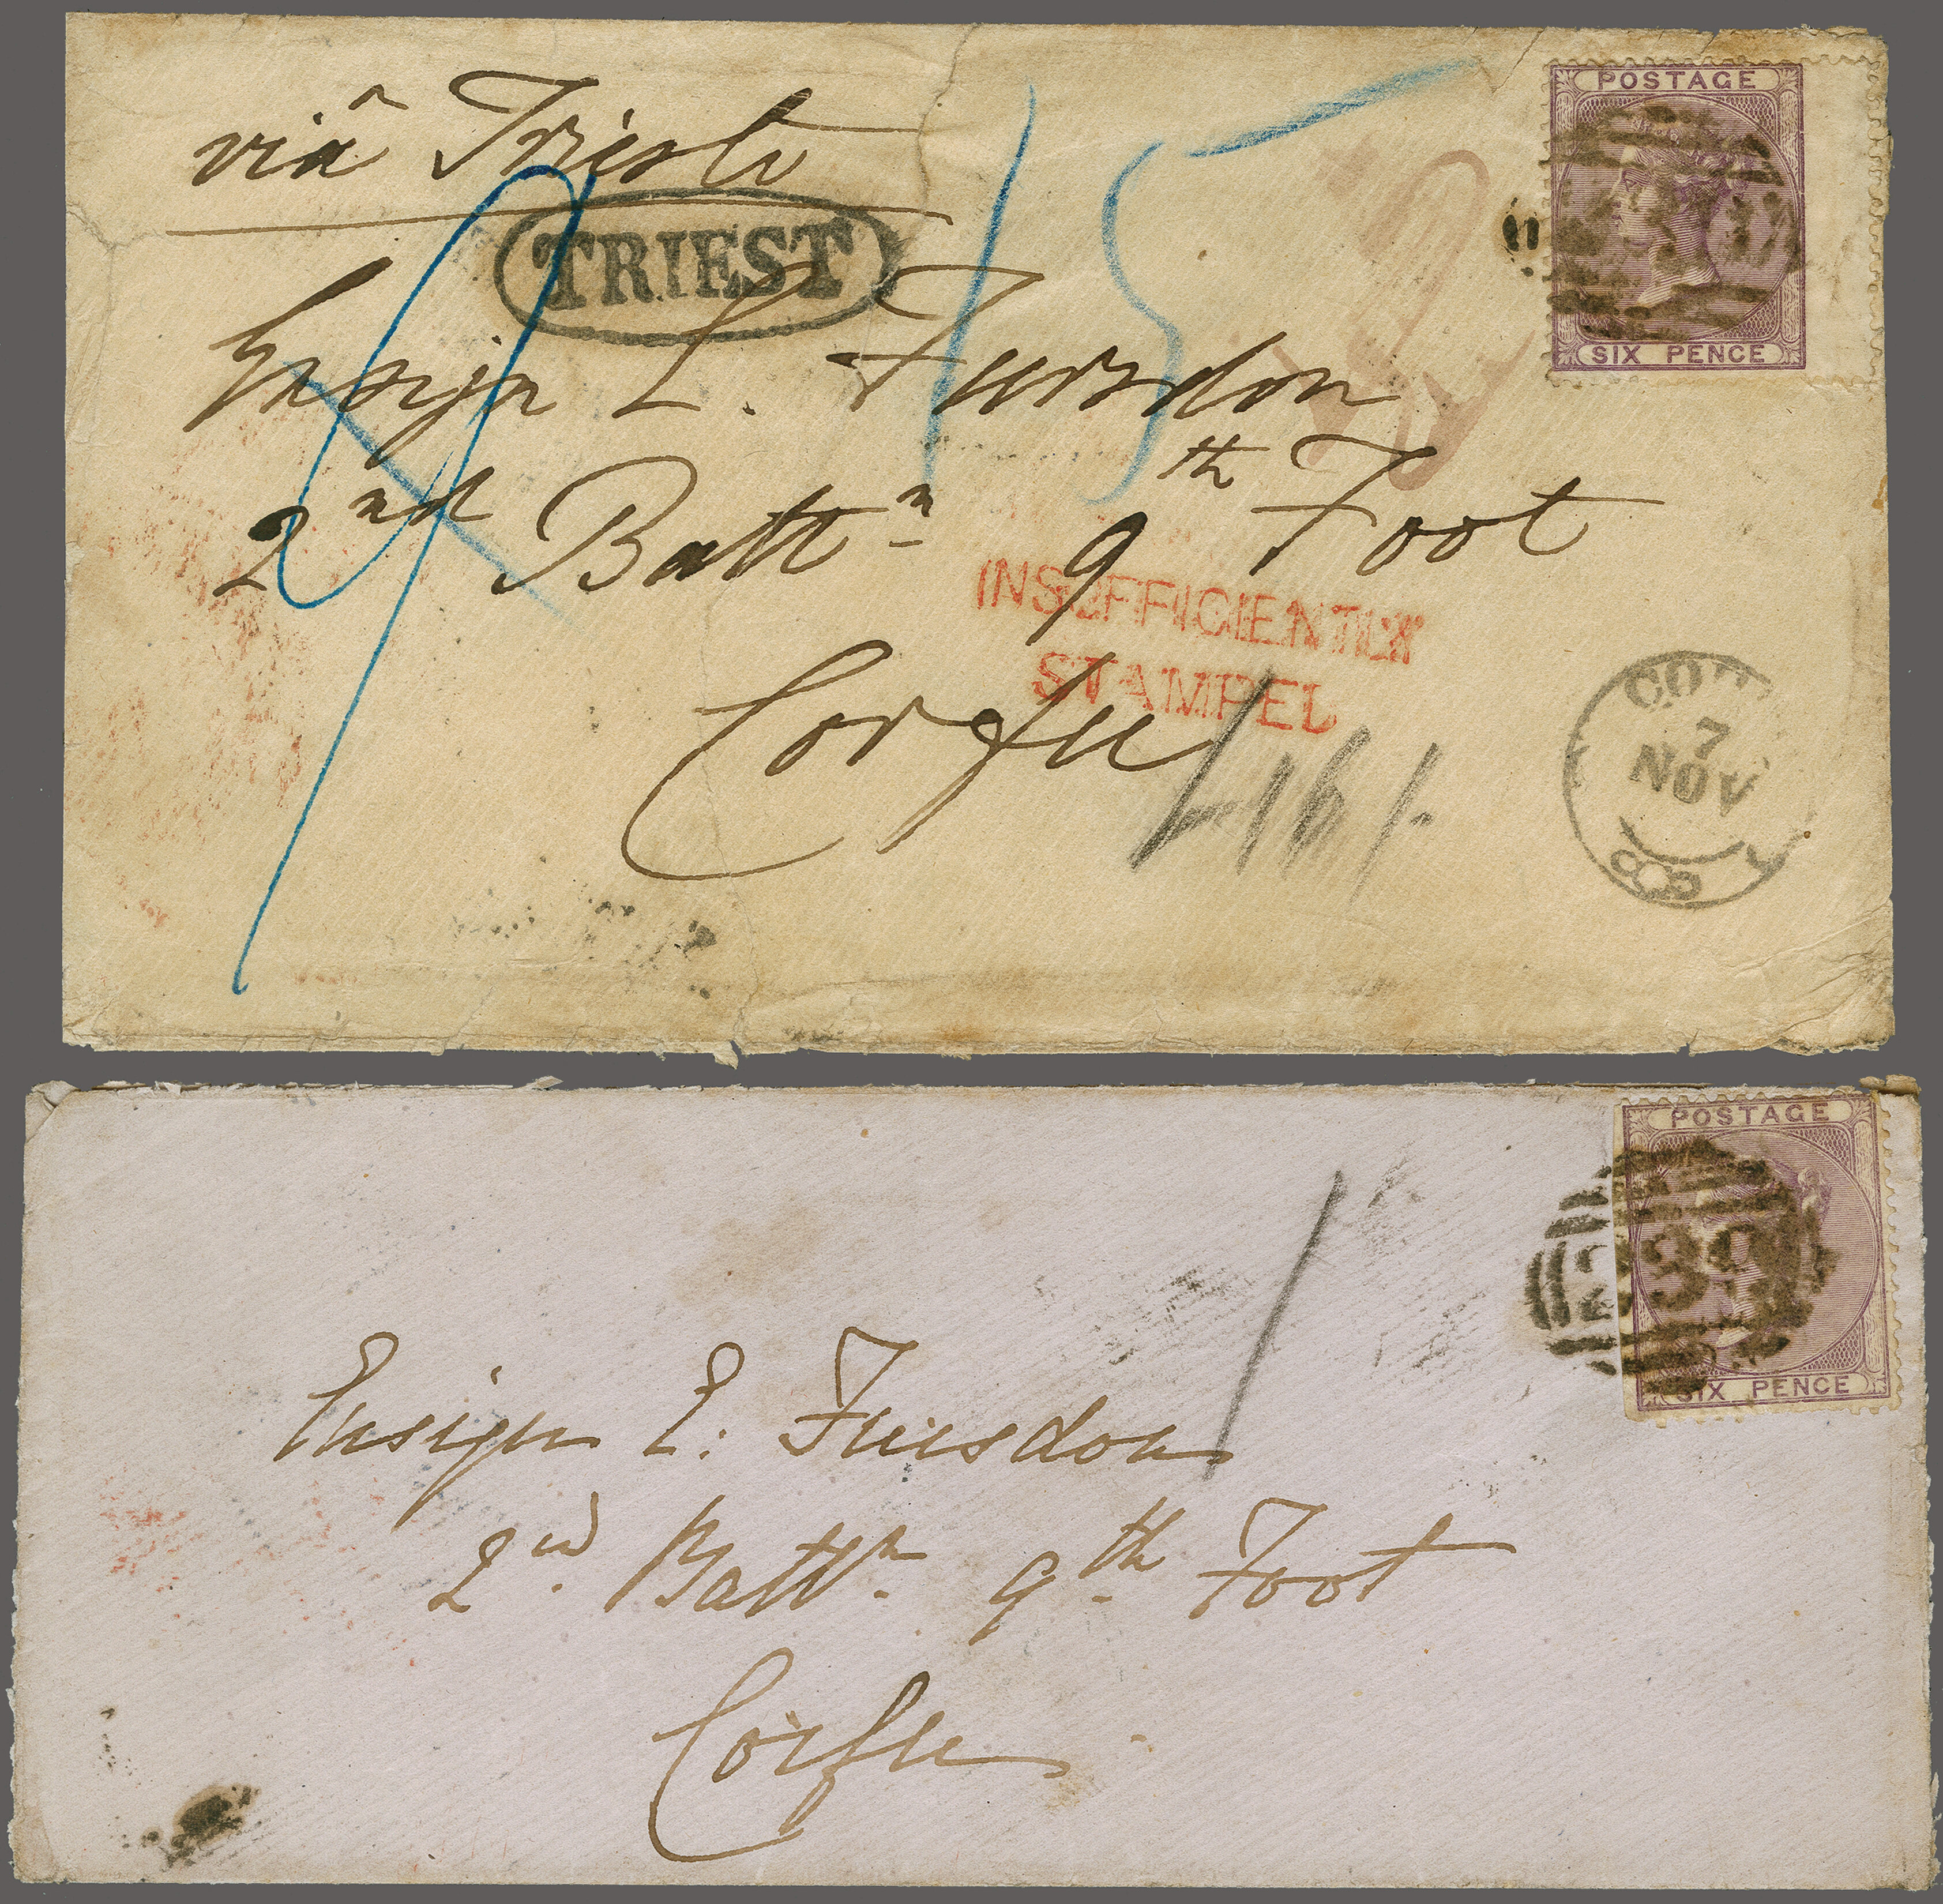 viâ Trieste
POSTAGE
SIX PENCE
TRIEST
15
Ensign E. Fursdon
2nd Battn 9th Foot
INSUFFICIENTLY
STAMPED
Corfu
7
NOV
POSTAGE
239
SIX PENCE
Ensign E: Fursdon
2nd Battn 9th Foot
Corfu